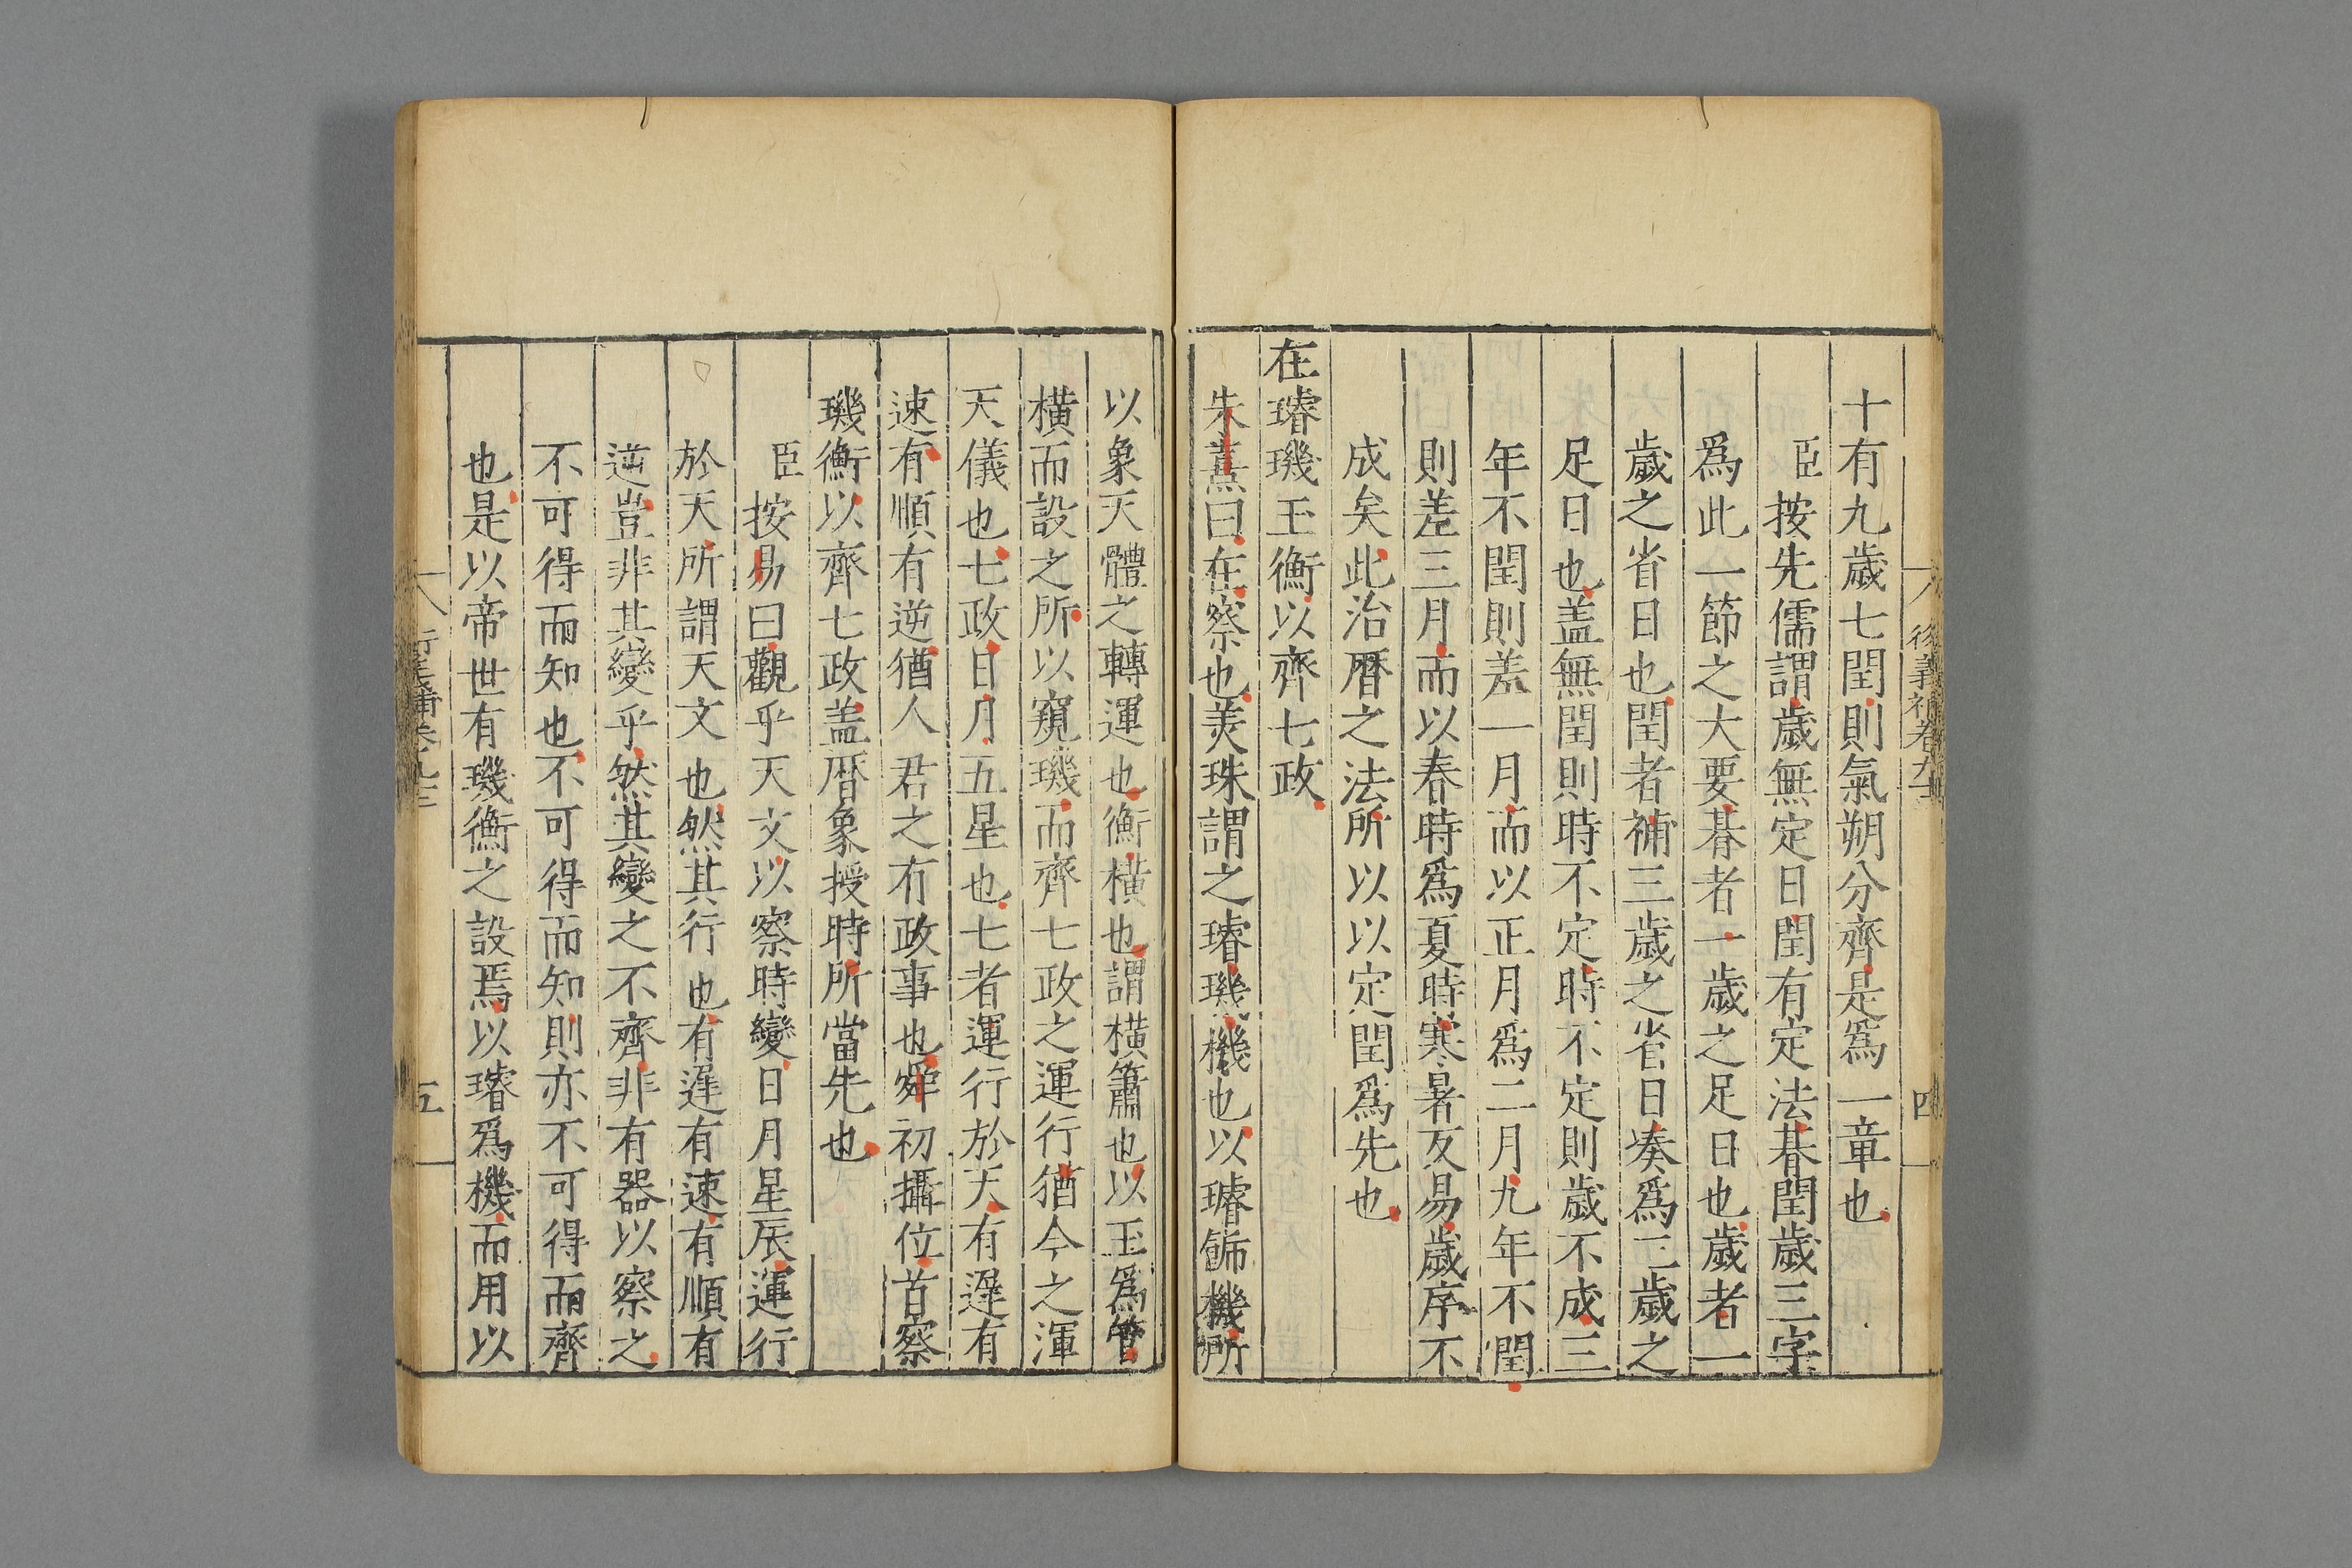 十有九歲七閏則氣朔分齊是爲一章也
臣按先儒謂歲無定日閏有定法朞閏歲三字
爲此一節之大要朞者一歲之足日也歲者一
歲之省日也閏者補三歲之省日凑爲三歲之
足日也盖無閏則時不定時不定則歲不成三
年不閏則差一月而以正月爲二月九年不閏
則差三月而以春時爲夏時寒暑反易歲序不
成矣此治曆之法所以以定閏爲先也
在璿璣玉衡以齊七政
朱熹曰在察也美珠謂之璿璣機也以璿飾機所
以象天體之轉運也衡橫也謂橫簫也以玉爲管
橫而設之所以窺璣而齊七政之運行猶今之渾
天儀也七政日月五星也七者運行於天有遲有
速有順有逆猶人君之有政事也舜初攝位首察
璣衡以齊七政盖曆象授時所當先也
臣按易曰觀乎天文以察時變日月星辰運行
於天所謂天文也然其行也有遲有速有順有
逆豈非其變乎然其變之不齊非有器以察之
不可得而知也不可得而知則亦不可得而齊
也是以帝世有璣衡之設焉以璿爲機而用以
五